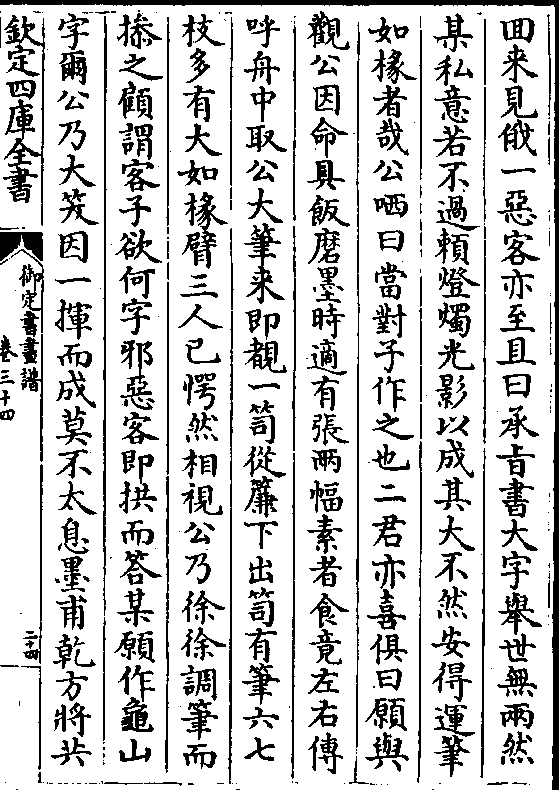 囬来見俄一惡客亦至且曰承旨書大字舉世無兩然
某私意若不過賴燈燭光影以成其大不然安得運筆
如椽者哉公哂曰當對子作之也二君亦喜俱曰願與
觀公因命具飯磨墨時適有張兩幅素者食竟左右傳
呼舟中取公大筆来即覩一笥從簾下出笥有筆六七
枝多有大如椽臂三人已愕然相視公乃徐徐調筆而
搽之顧謂客子欲何字邪惡客即拱而答某願作龜山
字爾公乃大笑因一揮而成莫不太息墨甫乾方將共
欽定四庫全書
御定書畫譜
卷三十四
二十四